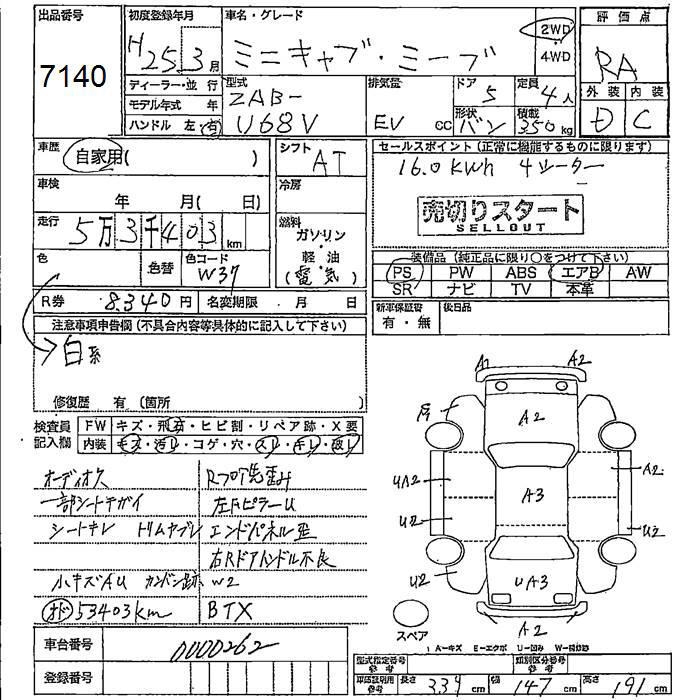 出品番号
7140
初度登録年月
H25 3月
車名・グレード
ミニキャブ・ミーブ
2WD
4WD
評価点
RA
ディーラー・並行
モデル年式 年
ハンドル 左・右
型式
ZAB-
U68V
排気量
EV CC
ドア
5
形状
バン
定員
4人
積載
350kg
外装 内装
D C
車歴
自家用( )
シフト
AT
セールスポイント(正常に機能するものに限ります)
16.0KWh 4シーター
売切りスタート
SELLOUT
車検
年 月( 日)
冷房
走行
5万3千403km
燃料
ガソリン
・
軽油
(電気)
色
色替
色コード
W37
装備品(純正品に限り〇をつけて下さい)
PS PW ABS エアB AW
SR ナビ TV 本革
R券 8,340円
名変期限 月 日
新車保証書
有・無
後日品
注意事項申告欄(不具合内容等具体的に記入して下さい)
白系
修復歴 有(箇所
検査員
記入欄
FW キズ・飛石・ヒビ割・リペア跡・X要
内装 キズ・汚レ・コゲ・穴・スレ・キレ・破レ
オーディオ欠
一部シートチガイ
シートキレ トリムヤブレ
小キズAU カンバン跡 W2
オド 53403km
Rフロア先歪み
左FピラーU
エンドパネル歪
右Rドアハンドル不良
BTX
A1 A2
A2
UA2 A3 A2
U2 U2
U2 UA3
A2
スペア
A-キズ E-エクボ U-凹み W-補修跡
車台番号
0000262
登録番号
型式指定番号
参考
類別区分番号
参考
車庫証明用
参考
長さ 339cm
幅 147cm
高さ 191cm